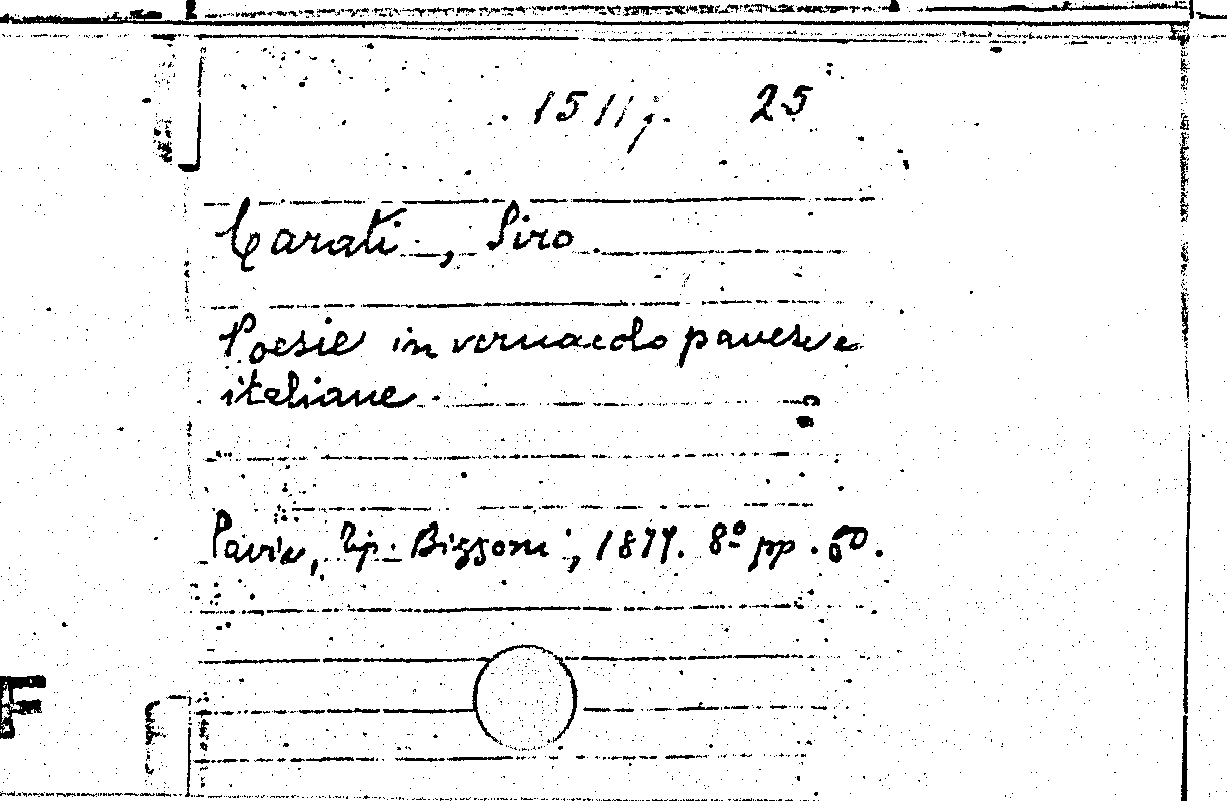 1511 j. 25
Carati, Siro.
Poesie in vernacolo pavese e
italiane.
Pavia, Tip. Bizzoni, 1877. 8º pp.